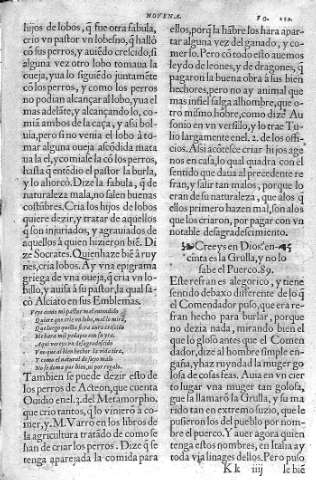 NOVENA.
hijos de lobos, q̃ fue otra fabula,
crio vn pastor vn lobesno, q̃ hallò
cõ sus perros, y auiẽdo crecido, si
alguna vez otro lobo tomaua la
oueja, yua lo siguiẽdo juntamẽte
cõ los perros, y como los perros
no podian alcançar al lobo, yua el
mas adelãte, y alcançando lo, co-
miã ambos de la caça, y assi bol-
uia, pero si no venia el lobo à to-
mar alguna oueja ascõdida mata
ua la el, y comiasela cõ los perros,
hasta q̃ entẽdio el pastor la burla,
y lo ahorcò. Dize la fabula, q̃ de
naturaleza mala, no salen buenas
costũbres. Cria los hijos de lobos
quiere dezir, y tratar de aquellos
q̃ son injuriados, y agrauiados de
aquellos à quien hizieron biẽ. Di
ze Socrates. Quien haze biẽ à ruy
nes, cria lobos. Ay vna epigrama
griega de vna oueja, q̃ cria vn lo-
billo, y auisa à su pastor, la qual sa-
cò Alciato en sus Emblemas.
Tambien se puede dezir esto de
los perros de Acteon, que cuenta
Ouidio en el.3. del Metamorpho,
que crio tantos, q̃ lo vinierõ à co-
mer, y. M. Varro en los libros de
la agricultura tratãdo de como se
han de criar los perros. Dize q̃ se
tenga aparejada la comida para
ellos, porq̃ la hãbre los hara apar-
tar alguna vez del ganado, y co-
merlo. Pero cõ todo ello auemos
leydo de leones, y de dragones, q̃
pagaron la buena obra à las bien
hechores, pero no ay animal que
mas infiel salga al hombre, que o-
tro mismo hõbre, como dizẽ Au
sonio en vn versillo, y lo trae Tu
lio largamente en el.2. de los offi-
cios. Assi acõtesce criar hijos age
nos en casa, lo qual quadra con el
sentido que daua al precedente re
fran, y salir tan malos, porque lo
eran de su naturaleza, que à los q̃
ellos primero hazen mal, son à los
que los criaron, por pagar con vn
notable desagradescimiento.
Creeys en Dios. en-
cinta es la Grulla, y no lo
sabe el Puerco. 89.
Este refran es alegorico, y tiene
sentido debaxo differente de lo q̃
el Comendador puso, que era re-
fran hecho para burlar, porque
no dezia nada, mirando bien el
que lo glosò antes que el Comen
dador, dize al hombre simple en-
gaña, y haz ruyndad la muger go
losa de cosas feas. Auia en vn cier
to lugar vna muger tan golosa,
que la llamarõ la Grulla, y su ma
rido tan en extremo suzio, que le
pusieron los del pueblo por nom-
bre el puerco. Y auer agora quien
tenga estos nombres, en Italia ay
toda via linages dellos. Pero puso
K k iiij
le bie